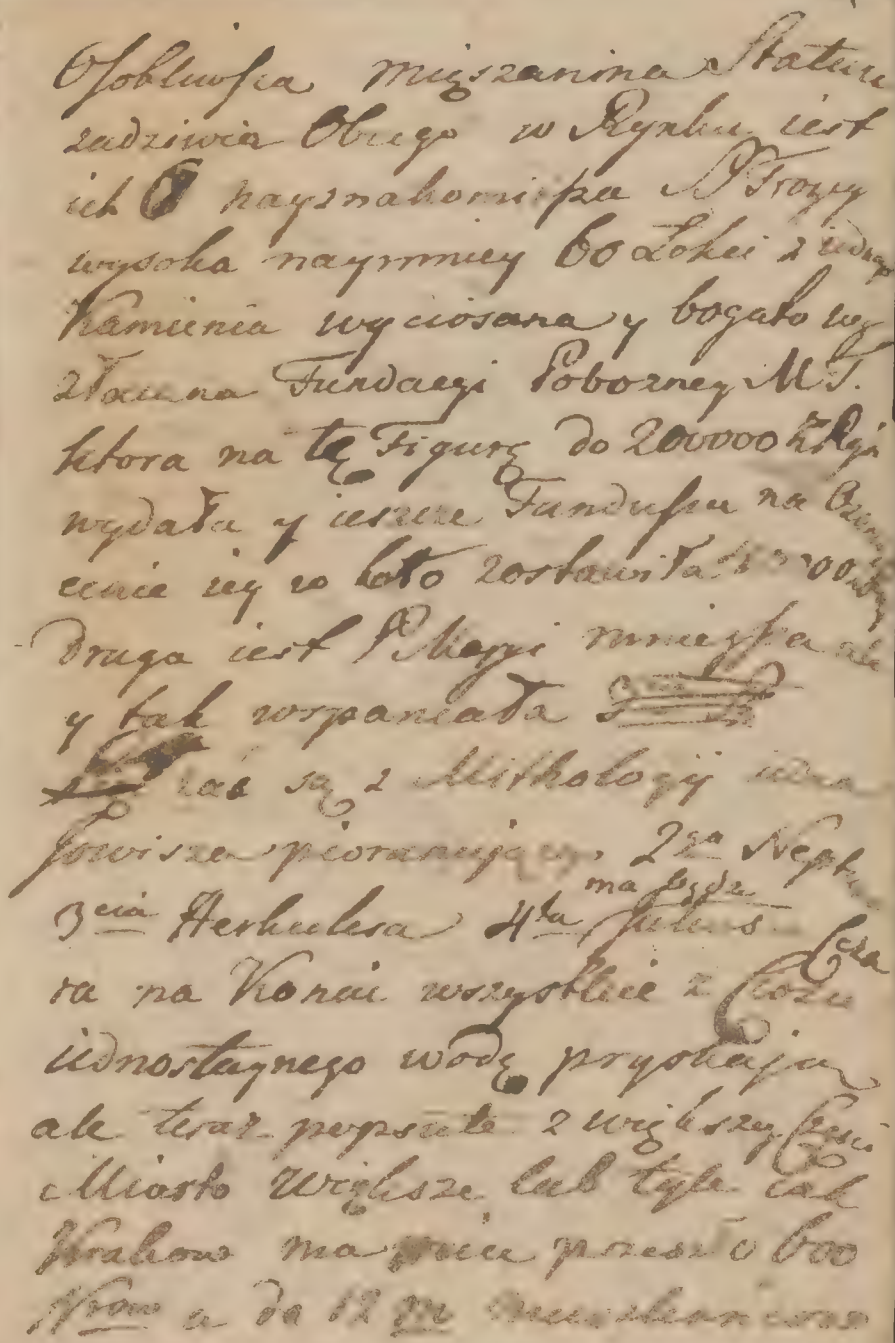 Osobliwsza mięszanina Statuu
zadziwia Obcego w Rynku iest
ich 6 nayznakomitsza S Troycy
wysoka naymniey 60 Łokci z iedneg
Kamienia wyciosana y bogato wy
złocona Fundacyi Pobożney M T.
ktora na tę Figurę do 200000
wydała y ieszcze Funduszu na
cenie iey w lato zostawiła
druga iest P Maryi mnieysza ale
y tak wspaniała
zaś są z Mithologij iedna
Jowisza pioranującego 2ga Neptu
3cia Herkulesa 4ta ma bydz Juliusza Ceza
ra na Koniu wszystkie z Ciosu
iednostaynego wodę pryskają
ale teraz popsute z większey Części
Miasto Większe lub tyle iak
Krakow ma przeszło 600
Nrow a do 12 m